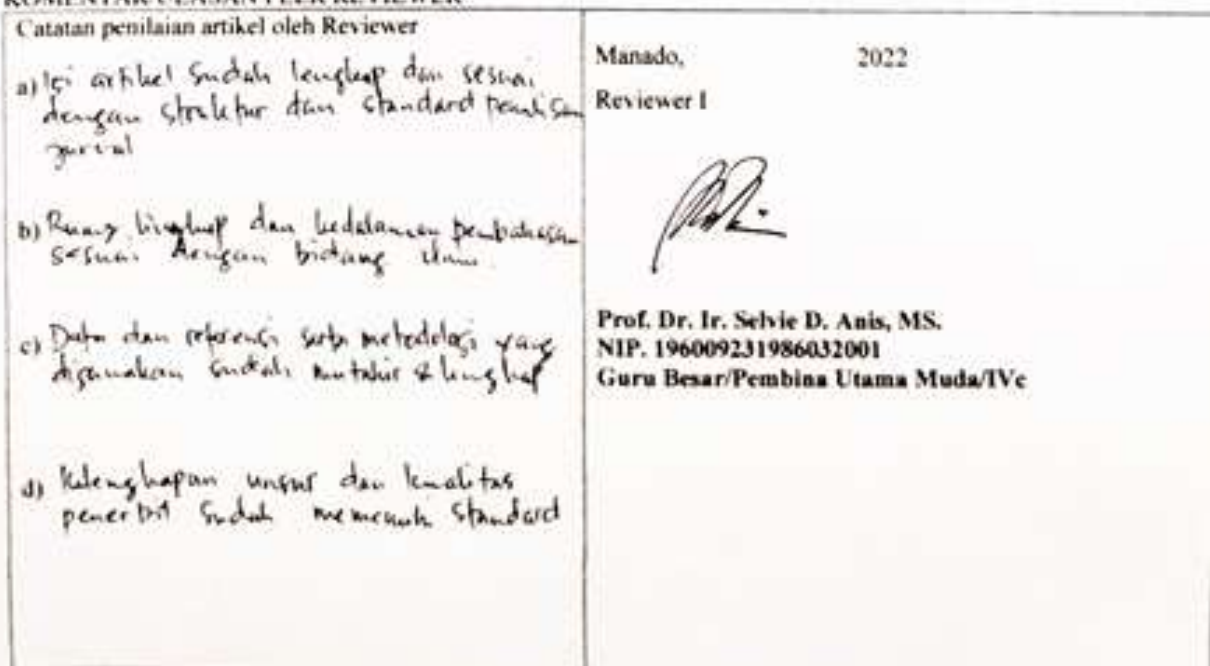 KOMENTAR ULASAN PEER REVIEWER
Catatan penilaian artikel oleh Reviewer
a) Isi artikel sudah lengkap dan sesuai
dengan struktur dan standard penulisan
jurnal
b) Ruang lingkup dan kedalaman pembahasan
sesuai dengan bidang ilmu.
c) Data dan referensi serta metodologi yang
digunakan sudah mutahir & lengkap
d) Kelengkapan unsur dan kualitas
penerbit sudah memenuhi standard
Manado, 2022
Reviewer I
Prof. Dr. Ir. Selvie D. Anis, MS.
NIP. 196009231986032001
Guru Besar/Pembina Utama Muda/IVc